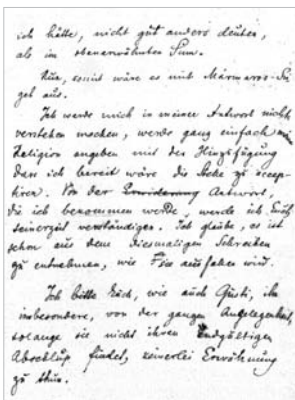 ich hätte, nicht gut anders deuten,
als im obenerwähnten Sinn.
Nun, somit wäre es mit Mármaros-Szi-
get aus.
Ich werde mich in meiner Antwort nicht
verstehen machen, werde ganz einfach m
Religion angeben mit der Hinzufügung
dass ich bereit wäre die Stelle zu accep-
tiren. Von der Erwiderung Antwort,
die ich bekommen werde, werde ich Euch
seinerzeit verständigen. Ich glaube, es ist
schon aus dem diesmaligen Schreiben
zu entnehmen, wie sie ausfallen wird.
Ich bitte Euch, wie auch Gusti, ihn
insbesondere, von der ganzen Angelegenheit,
solange sie nicht ihren Endgültigen
Abschluss findet, keinerlei Erwähnung
zu thun.